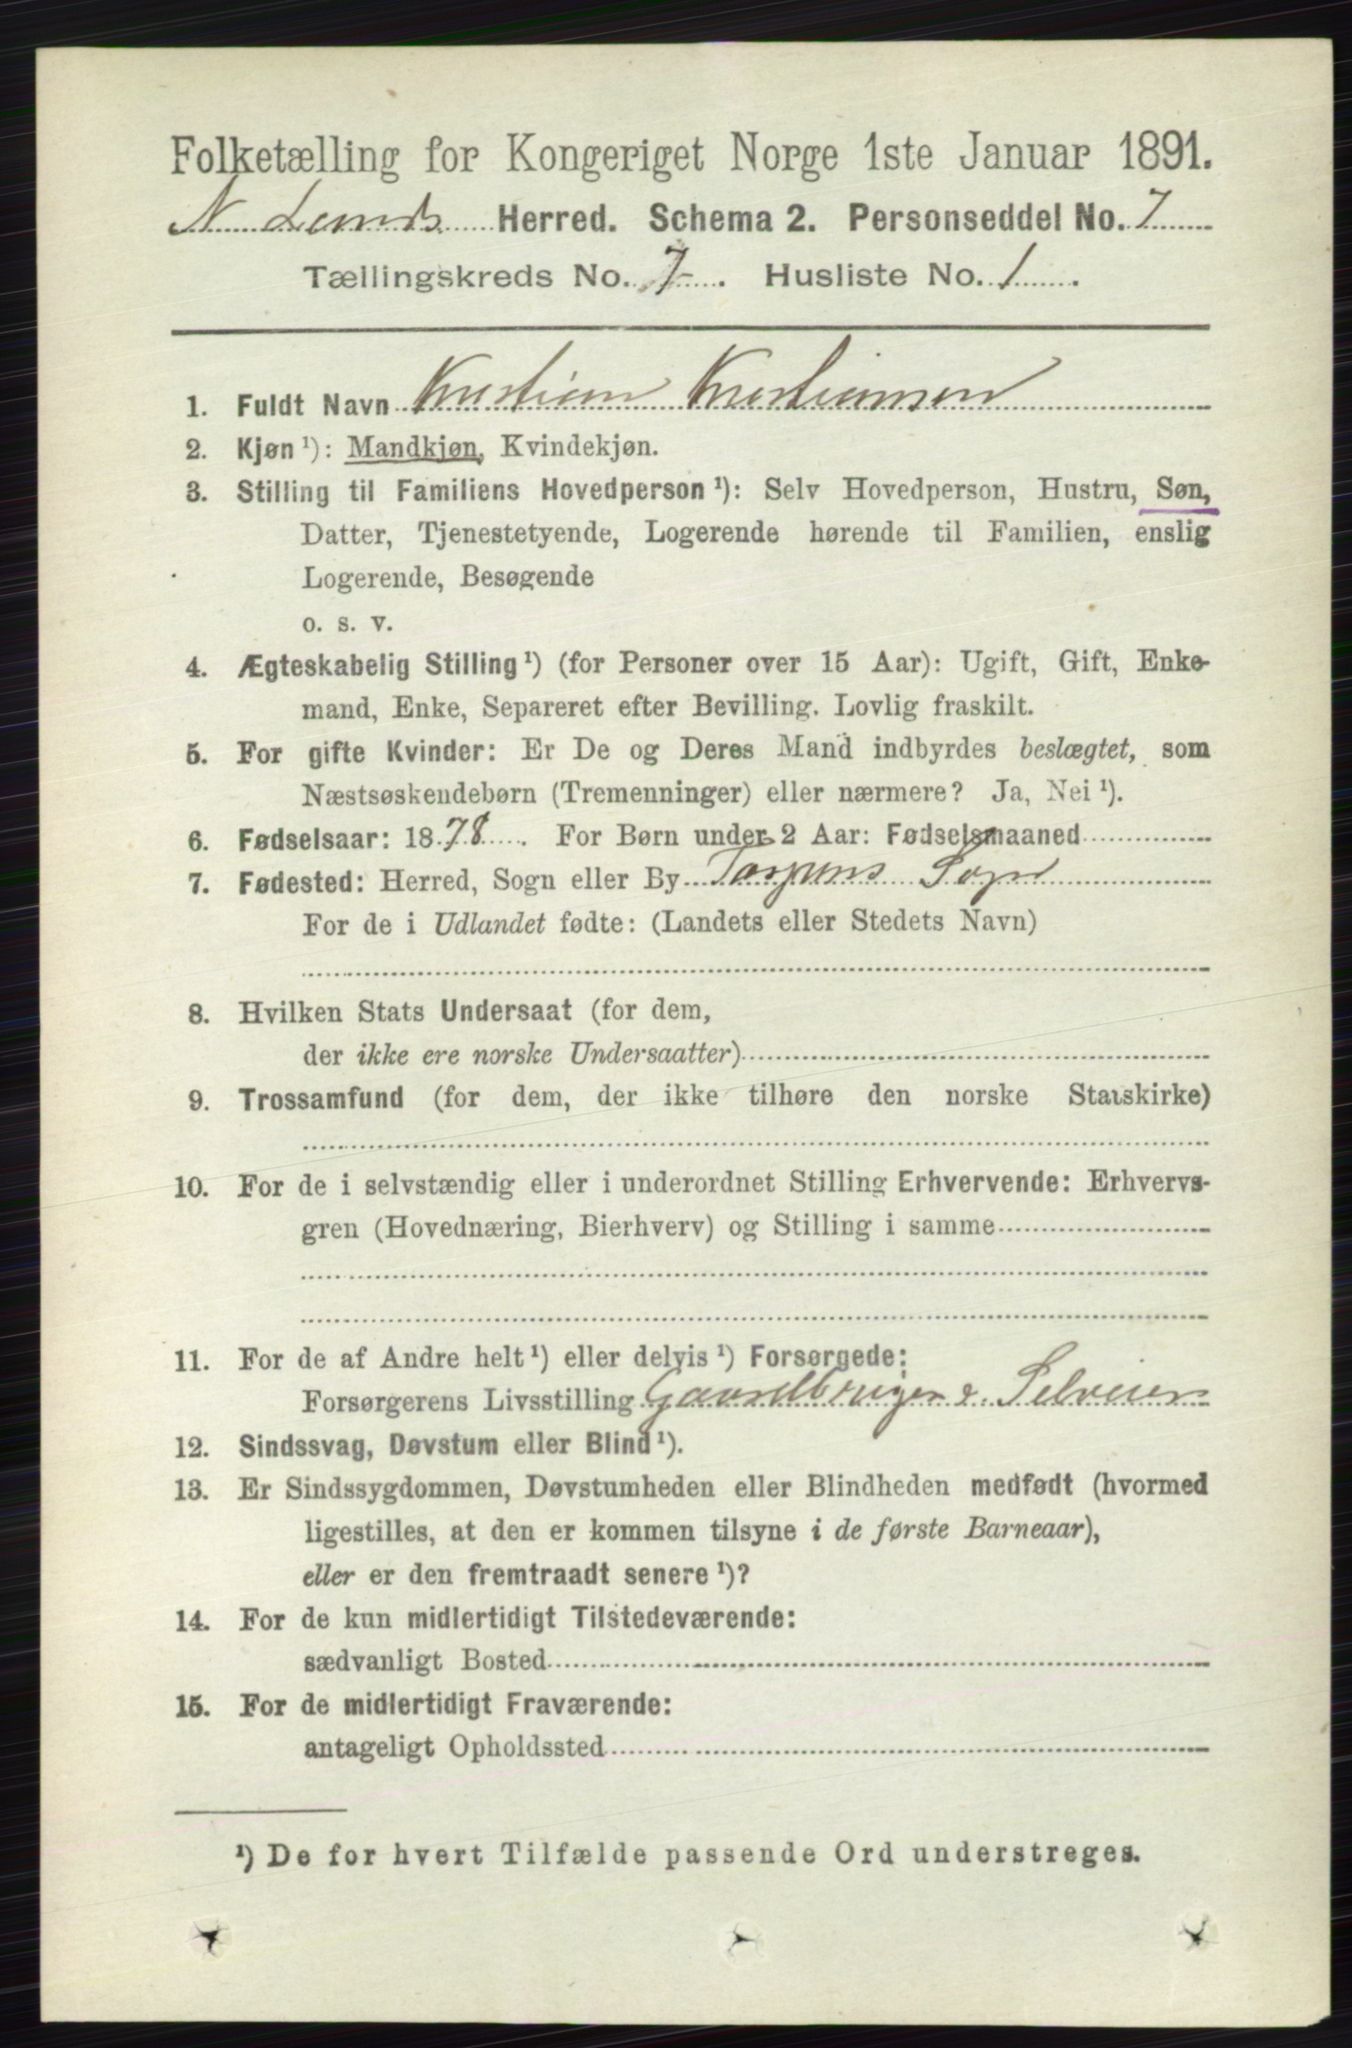 Folketælling for Kongeriget Norge 1ste Januar 1891.
N. Lands Herred. Schema 2. Personseddel No. 7
Tællingskreds No. 7. Husliste No. 1.
1. Fuldt Navn Kristian Kristiansen
2. Kjøn ¹): Mandkjøn, Kvindekjøn.
3. Stilling til Familiens Hovedperson ¹): Selv Hovedperson, Hustru, Søn,
Datter, Tjenestetyende, Logerende hørende til Familien, enslig
Logerende, Besøgende
o. s. v.
4. Ægteskabelig Stilling ¹) (for Personer over 15 Aar): Ugift, Gift, Enke-
mand, Enke, Separeret efter Bevilling. Lovlig fraskilt.
5. For gifte Kvinder: Er De og Deres Mand indbyrdes beslægtet, som
Næstsøskendebørn (Tremenninger) eller nærmere? Ja, Nei ¹).
6. Fødselsaar: 1878. For Børn under 2 Aar: Fødselsmaaned
7. Fødested: Herred, Sogn eller By Torpens Sogn
For de i Udlandet fødte: (Landets eller Stedets Navn)
8. Hvilken Stats Undersaat (for dem,
der ikke ere norske Undersaatter)
9. Trossamfund (for dem, der ikke tilhøre den norske Statskirke)
10. For de i selvstændig eller i underordnet Stilling Erhvervende: Erhvervs-
gren (Hovednæring, Bierhverv) og Stilling i samme
11. For de af Andre helt ¹) eller delvis ¹) Forsørgede:
Forsørgerens Livsstilling Gaardbruger & Selveier
12. Sindssvag, Døvstum eller Blind ¹).
13. Er Sindssygdommen, Døvstumheden eller Blindheden medfødt (hvormed
ligestilles, at den er kommen tilsyne i de første Barneaar),
eller er den fremtraadt senere ¹)?
14. For de kun midlertidigt Tilstedeværende:
sædvanligt Bosted
15. For de midlertidigt Fraværende:
antageligt Opholdssted
¹) De for hvert Tilfælde passende Ord understreges.